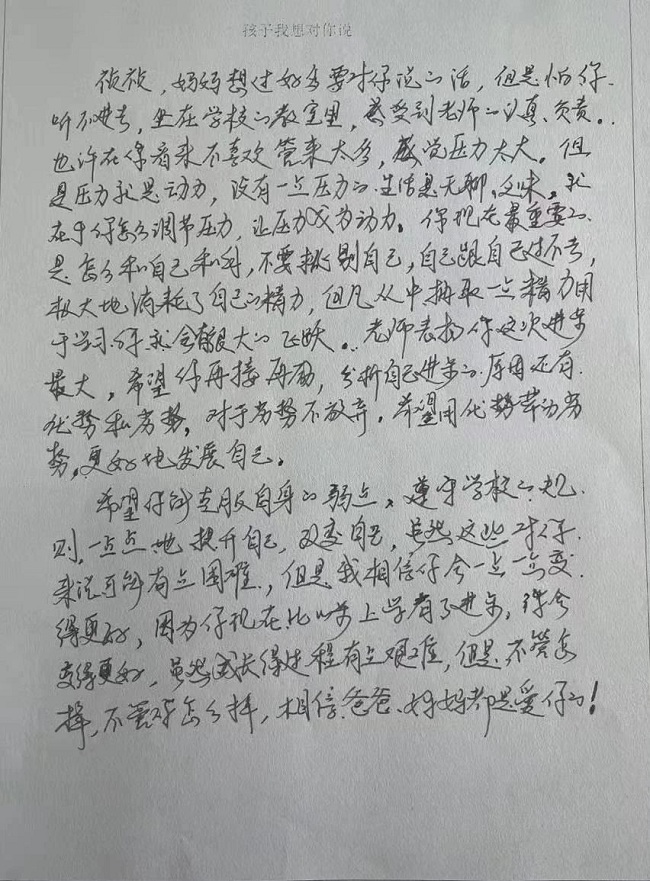 孩子我想对你说
妈妈想过好多要对你说的话，但是怕你
听不进去，坐在学校的教室里，感受到老师的认真、负责。
也许在你看来不喜欢管束太多，感觉压力太大。但
是压力就是动力，没有一点压力的生活是无聊、乏味。就
在于你怎么调节压力，让压力成为动力。你现在最重要的
是怎么和自己和解，不要挑剔自己，自己跟自己过不去，
极大地消耗了自己的精力，但凡从中抽取一点精力用
于学习你就会有很大的飞跃。老师表扬你这次进步
最大，希望你再接再励，分析自己进步的原因还有
优势和劣势，对于劣势不放弃，希望用优势带动劣
势，更好地发展自己。
希望你能克服自身的弱点，遵守学校的规
则，一点点地提升自己，改变自己，虽然这些对你
来说可能有点困难，但是我相信你会一点一点变
得更好，因为你现在比 上学有了进步，你会
变得更好，虽然成长得过程有点艰难，但是不管怎
样，不管你怎么样，相信爸爸、妈妈都是爱你的！